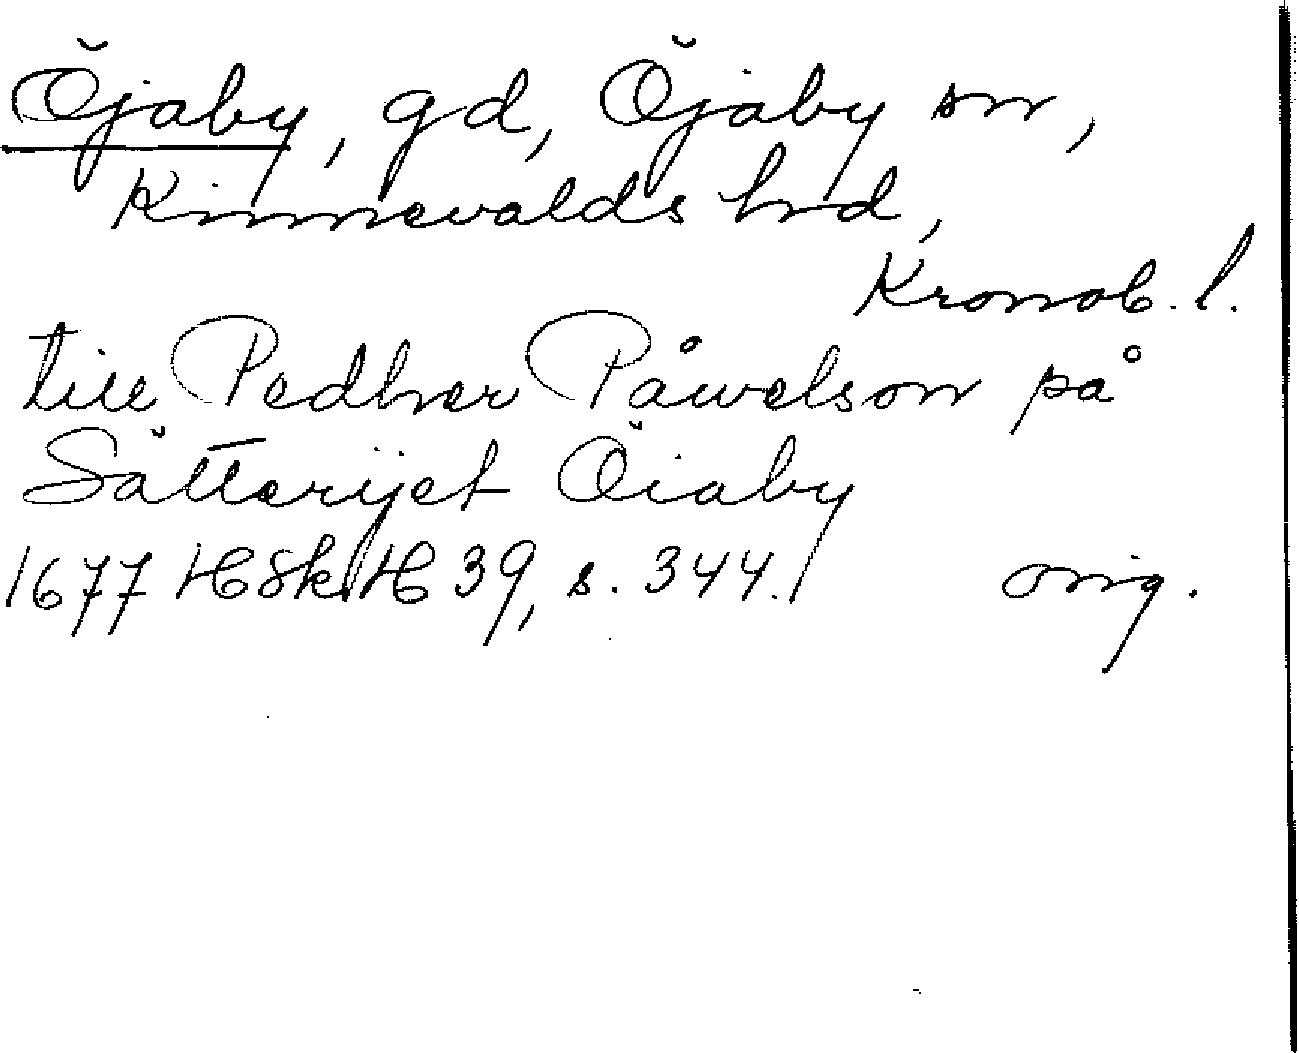 Öjaby, gd, Öjaby sn,
Kinnevalds hrd,
Kronob. l.
till Pedher Påwelson på
Sätterijet Öiaby
1677 HSkH 39, s. 344.
orig.